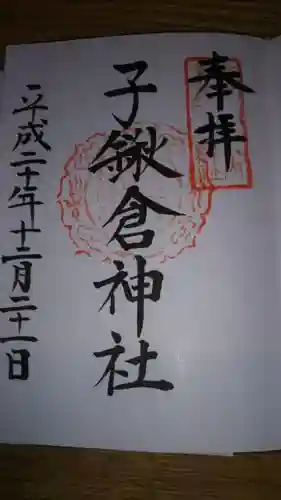 奉拝
子鍬倉神社
平成二十年十二月二十一日